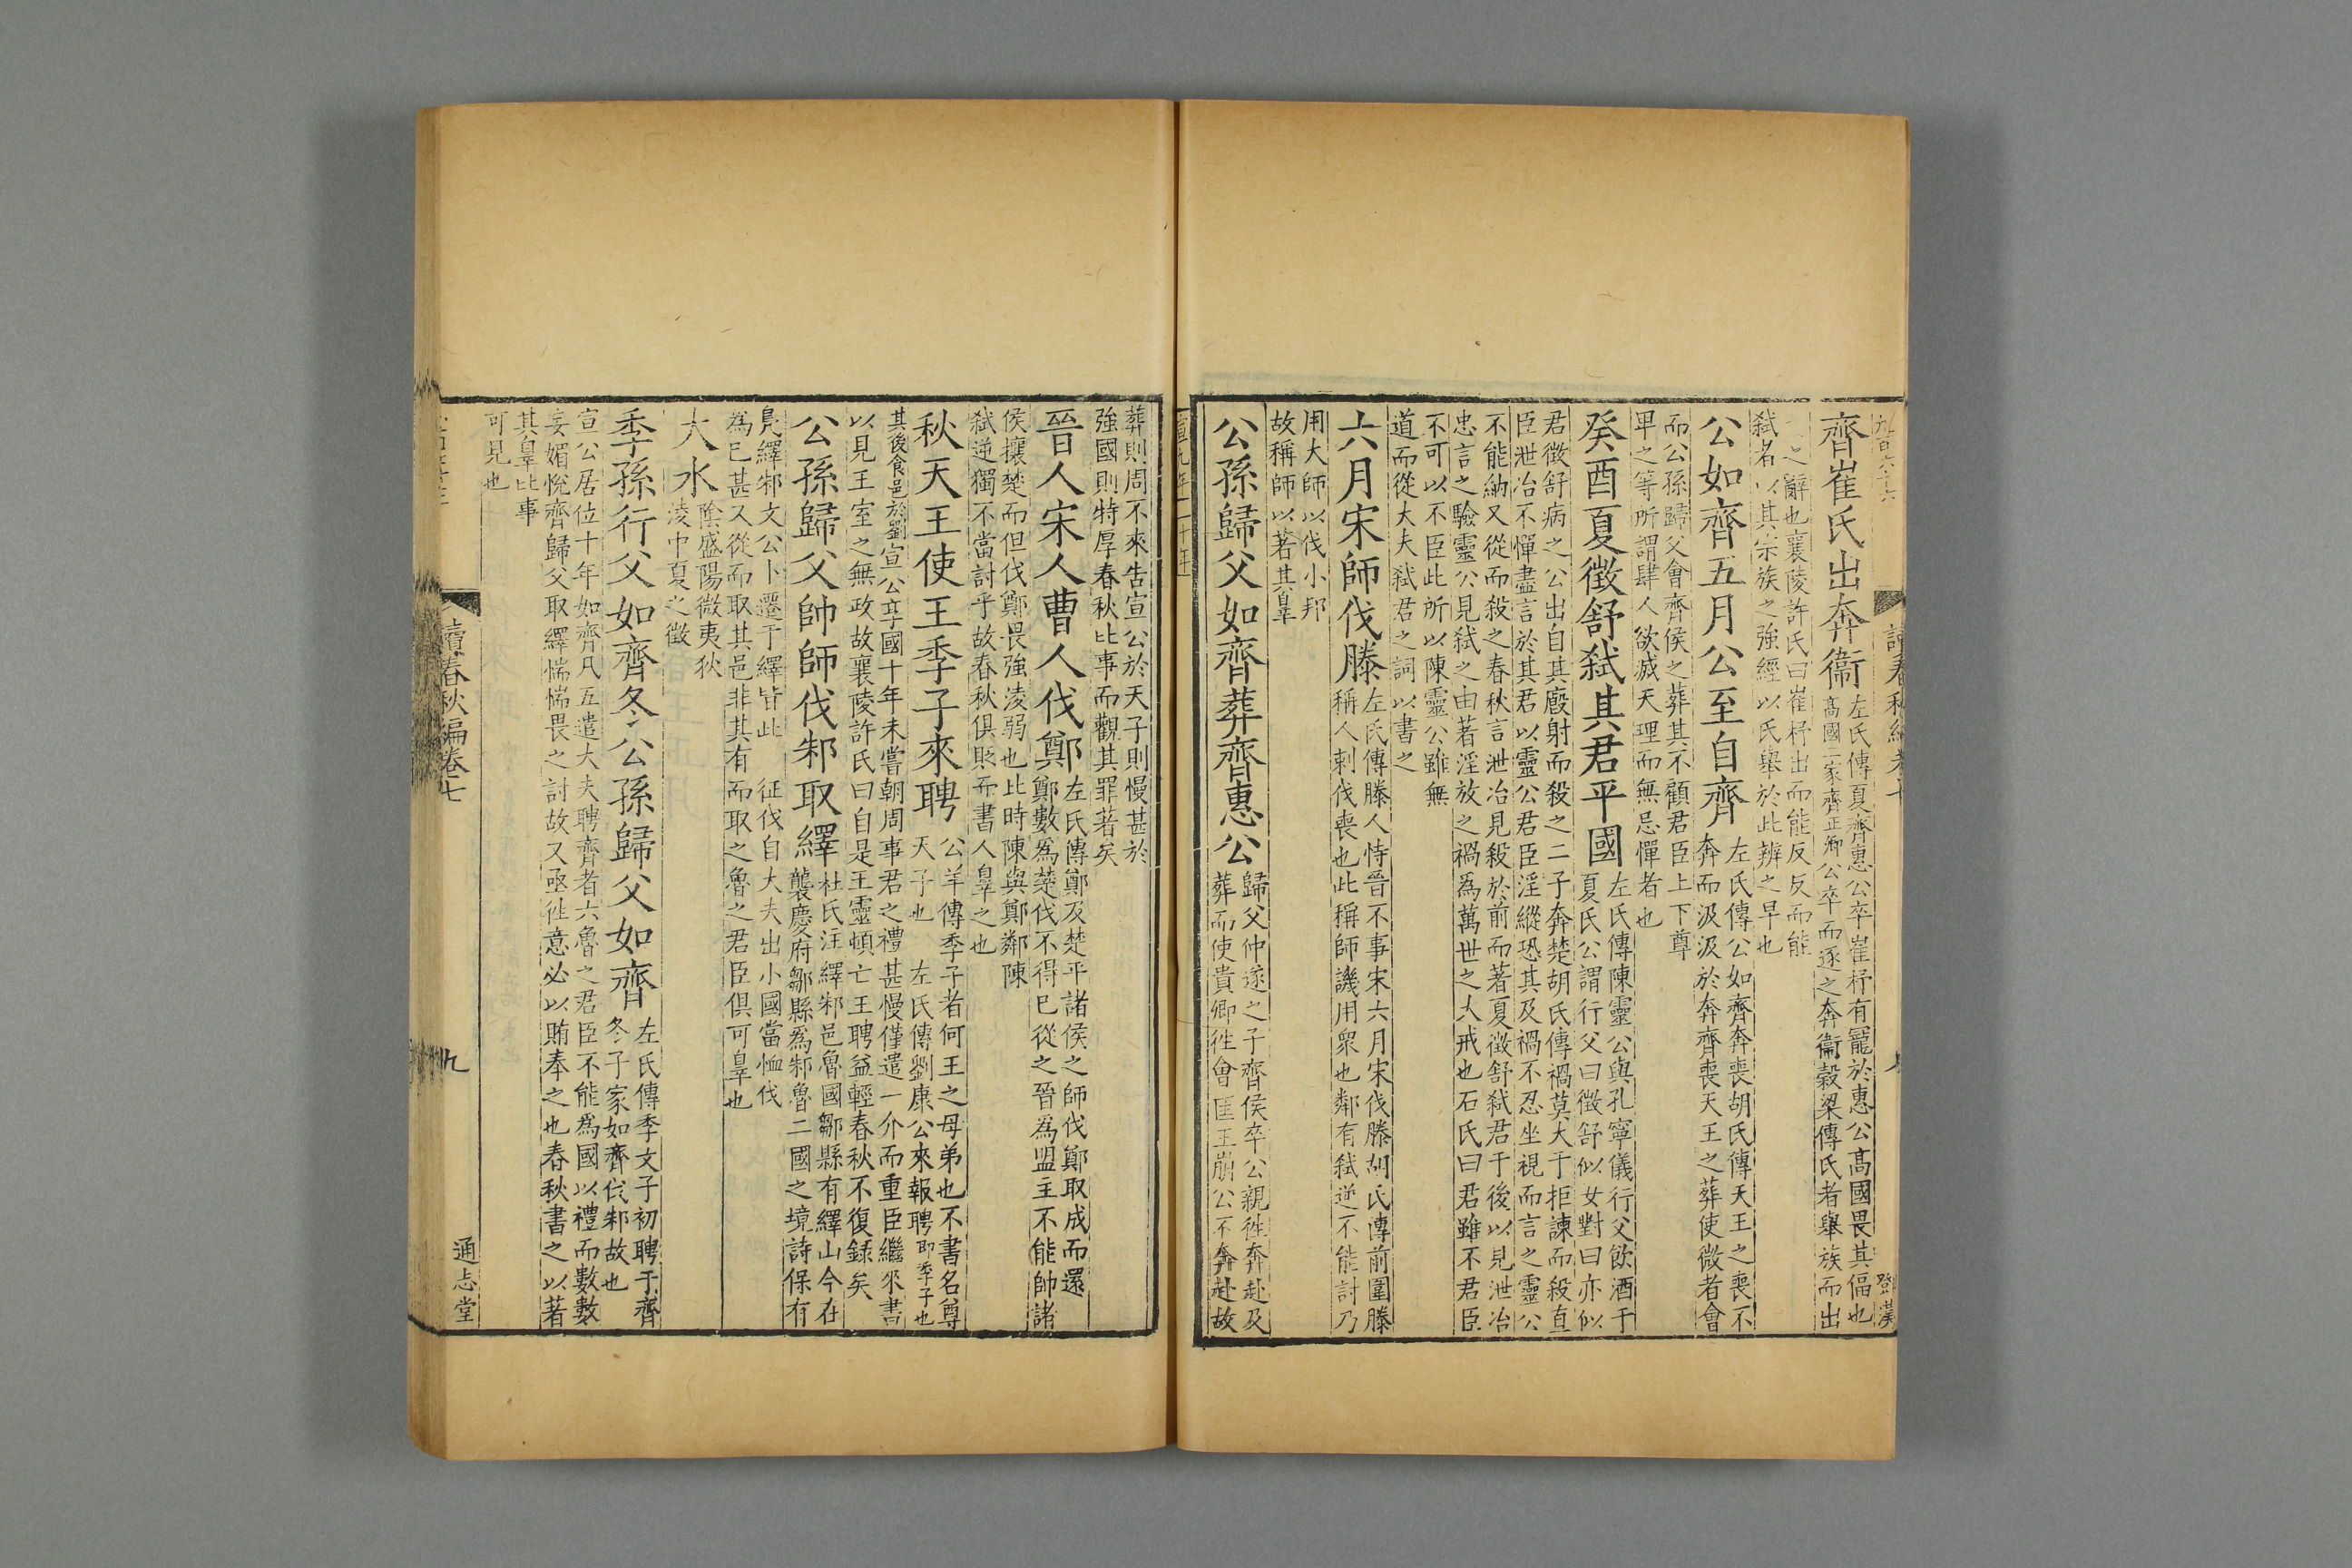 齊崔氏出奔衞左氏傳夏齊惠公卒崔杼有寵於惠公高國畏其偪也
高國二家齊正卿公卒而逐之奔衞穀梁傳氏者舉族而出
之辭也襄陵許氏曰崔杼出而能反反而能
弑者以其宗族之強經以氏舉於此辨之早也
公如齊五月公至自齊左氏傳公如齊奔喪胡氏傳天王之喪不
奔而汲汲於奔齊喪天王之葬使微者會
而公孫歸父會齊侯之葬其不顧君臣上下尊
卑之等所謂肆人欲滅天理而無忌憚者也
癸酉夏徵舒弑其君平國左氏傳陳靈公與孔寧儀行父飲酒于
夏氏公謂行父曰徵舒似女對曰亦似
君徵舒病之公出自其廄射而殺之二子奔楚胡氏傳禍莫大于拒諫而殺直
臣泄冶不憚盡言於其君以靈公君臣淫縱恐其及禍不忍坐視而言之靈公
不能納又從而殺之春秋言泄冶見殺於前而著夏徵舒弑君于後以見泄冶
忠言之驗靈公見弑之由著淫放之禍爲萬世之大戒也石氏曰君雖不君臣
不可以不臣此所以陳靈公雖無
道而從大夫弑君之詞以書之
六月宋師伐滕左氏傳滕人恃晉不事宋六月宋伐滕胡氏傳前圍滕
稱人刺伐喪也此稱師譏用衆也鄰有弑逆不能討乃
用大師以伐小邦
故稱師以著其辠
公孫歸父如齊葬齊惠公歸父仲遂之子齊侯卒公親徃奔赴及
葬而使貴卿徃會匡王崩公不奔赴故
葬則周不來告宣公於天子則慢甚於
強國則特厚春秋比事而觀其罪著矣
晉人宋人曹人伐鄭左氏傳鄭及楚平諸侯之師伐鄭取成而還
鄭數爲楚伐不得已從之晉爲盟主不能帥諸
侯攘楚而但伐鄭畏強淩弱也比時陳與鄭鄰陳
弑逆獨不當討乎故春秋俱貶而書人辠之也
秋天王使王季子來聘公羊傳季子者何王之母弟也不書名尊
天子也 左氏傳劉康公來報聘即季子也
其後食邑於劉宣公享國十年未嘗朝周事君之禮甚慢僅遣一介而重臣繼來書
以見王室之無政故襄陵許氏曰自是王靈頓亡王聘益輕春秋不復録矣
公孫歸父帥師伐邾取繹杜氏注繹邾邑魯國鄒縣有繹山今在
襲慶府鄒縣爲邾魯二國之境詩保有
鳧繹邾文公卜遷于繹皆此 征伐自大夫出小國當恤伐
爲已甚又從而取其邑非其有而取之魯之君臣俱可辠也
大水陰盛陽微夷狄
淩中夏之徵
季孫行父如齊冬公孫歸父如齊左氏傳季文子初聘于齊
冬子家如齊伐邾故也
宣公居位十年如齊凡五遣大夫聘齊者六魯之君臣不能爲國以禮而數數
妄媚悅齊歸父取繹惴惴畏之討故又亟徃意必以賄奉之也春秋書之以著
其辠比事
可見也
讀春秋編卷七
九
通志堂